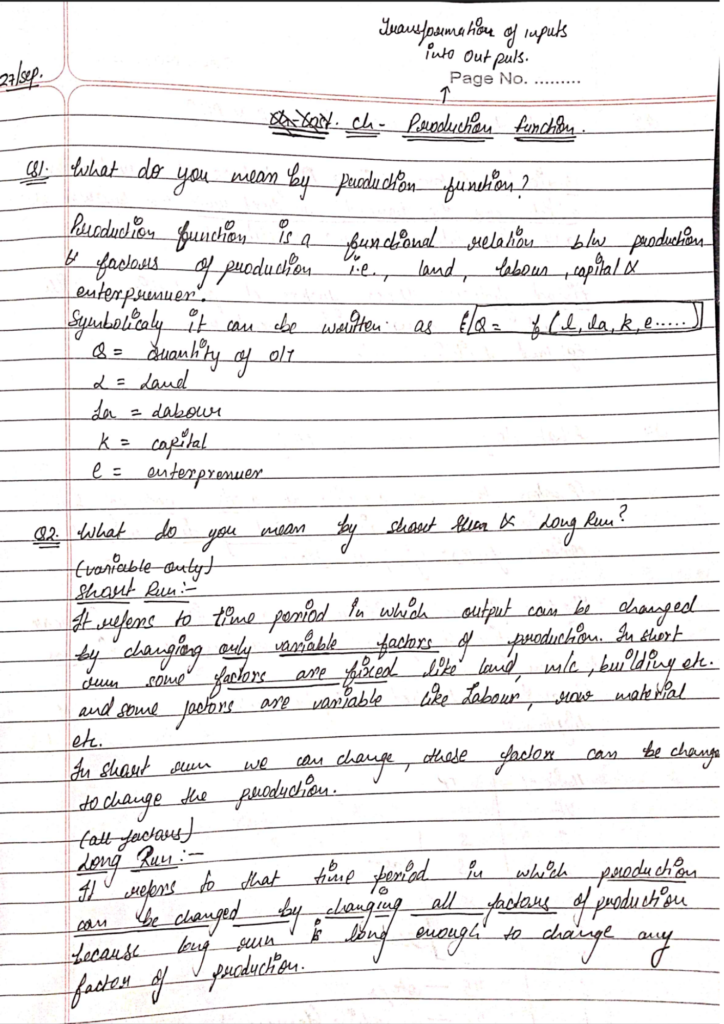 Transformation of inputs
into outputs.
27/sep.
Page No. .........
↑
ch- Production function.
Q1. What do you mean by production function?
Production function is a functional relation b/w production
& factors of production i.e., land, labour, capital &
enterprenuer.
Symbolicaly it can be written as Q = f(l, la, k, e.....)
Q = Quantity of o/t
L = Land
La = Labour
k = capital
e = enterprenuer
Q2. What do you mean by short run & Long Run?
(variable only)
Short Run:-
It refers to time period in which output can be changed
by changing only variable factors of production. In short
run some factors are fixed like land, m/c, building etc.
and some factors are variable like Labour, raw material
etc.
In short run we can change, those factors can be change
to change the production.
(all factors)
Long Run:-
It refers to that time period in which production
can be changed by changing all factors of production
because long run is long enough to change any
factor of production.